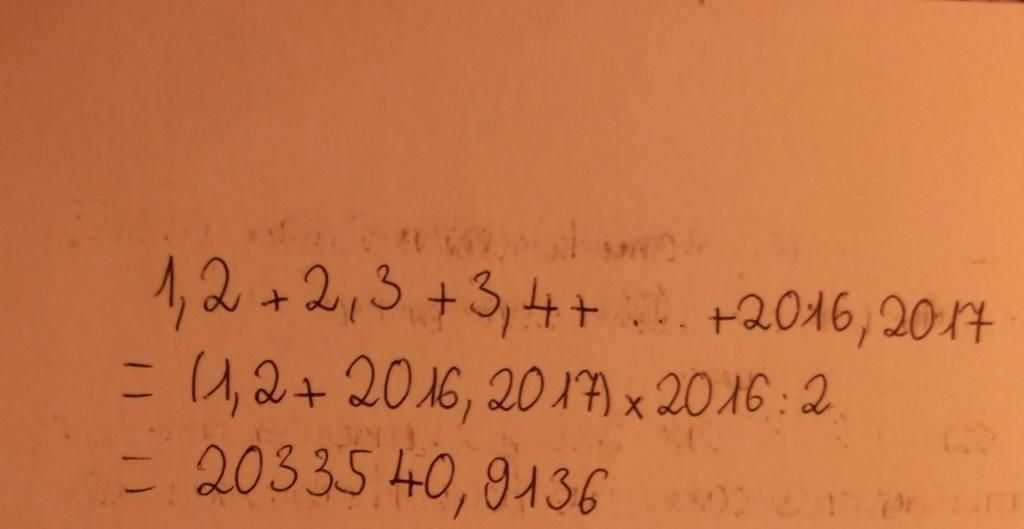 1,2 + 2,3 + 3,4 + . . . + 2016,2017
= (1,2 + 2016,2017) x 2016 : 2
= 2033540,9136